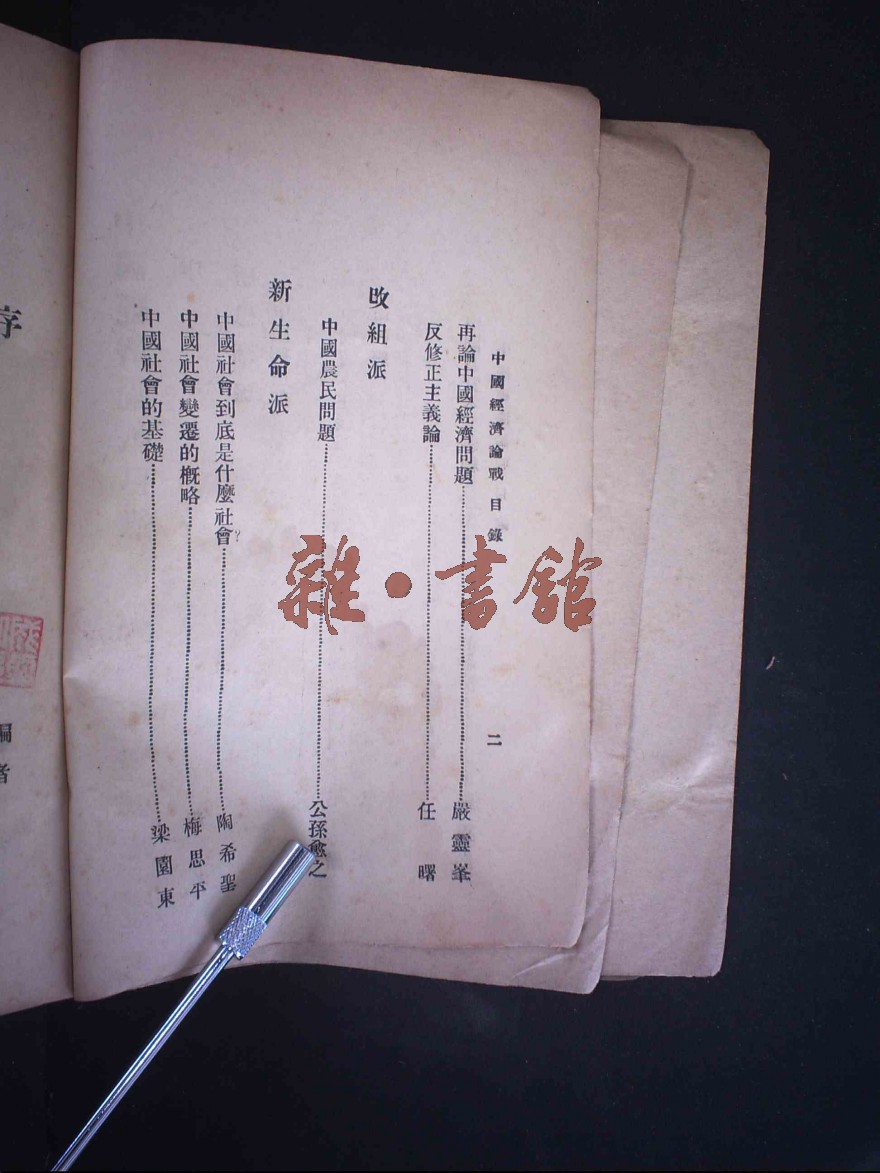 中國經濟論戰 目錄 二
再論中國經濟問題……嚴靈峯
反修正主義論……任曙
改組派
中國農民問題……公孫愈之
新生命派
中國社會到底是什麼社會?……陶希聖
中國社會變遷的概略……梅思平
中國社會的基礎……梁園東
序
編者
雜·書館